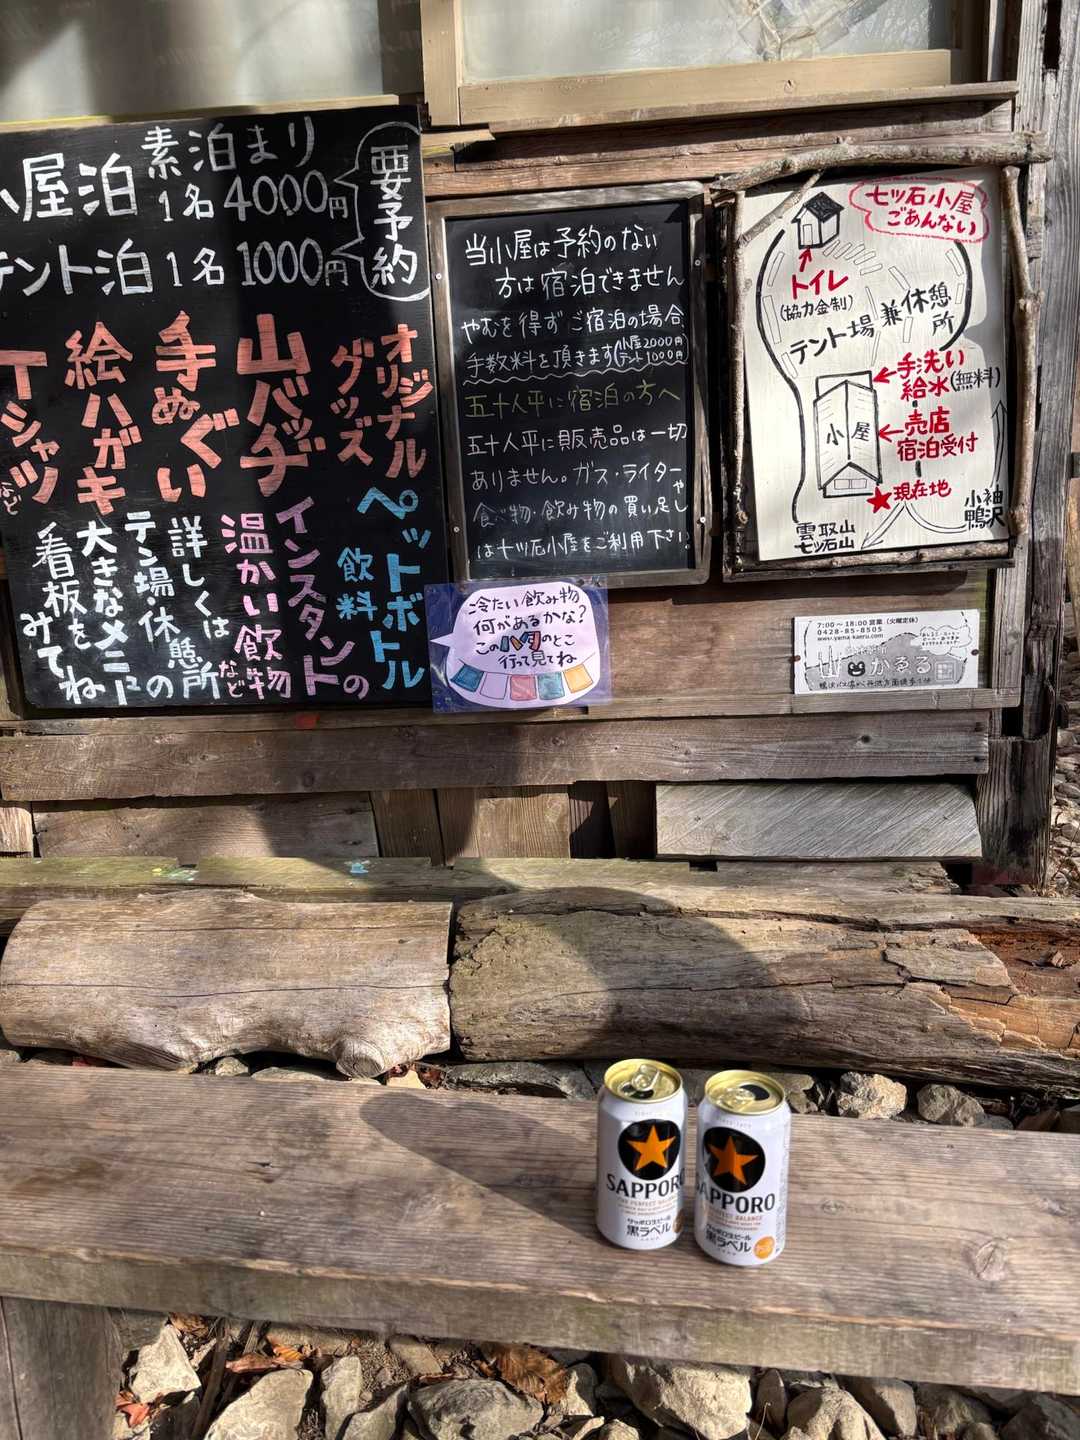 小屋泊 素泊まり
1名 4000円
テント泊 1名 1000円
要予約
オリジナル
グッズ
山バッヂ
手ぬぐい
絵ハガキ
Tシャツ
など
ペットボトル
飲料
インスタントの
温かい飲物
など
詳しくは
テン場・休憩所の
大きなメニューの
看板を
みてね
当小屋は予約のない
方は宿泊できません
やむを得ずご宿泊の場合
手数料を頂きます(小屋2000円 テント1000円)
五十人平に宿泊の方へ
五十人平に販売品は一切
ありません。ガス・ライターや
食べ物・飲み物の買い足し
は七ツ石小屋をご利用下さい
七ツ石小屋
ごあんない
トイレ
(協力金制)
テント場 兼休憩所
手洗い
給水(無料)
小屋
売店
宿泊受付
現在地
小袖
鴨沢
雲取山
七ツ石山
冷たい飲み物
何があるかな?
このハタのとこ
行って見てね
7:00〜18:00営業(火曜定休)
0428-85-8505
www.yama-kaeru.com
かるる
SAPPORO
THE PERFECT BALANCE
サッポロ生ビール
黒ラベル
SAPPORO
PERFECT BALANCE
サッポロ生ビール
黒ラベル